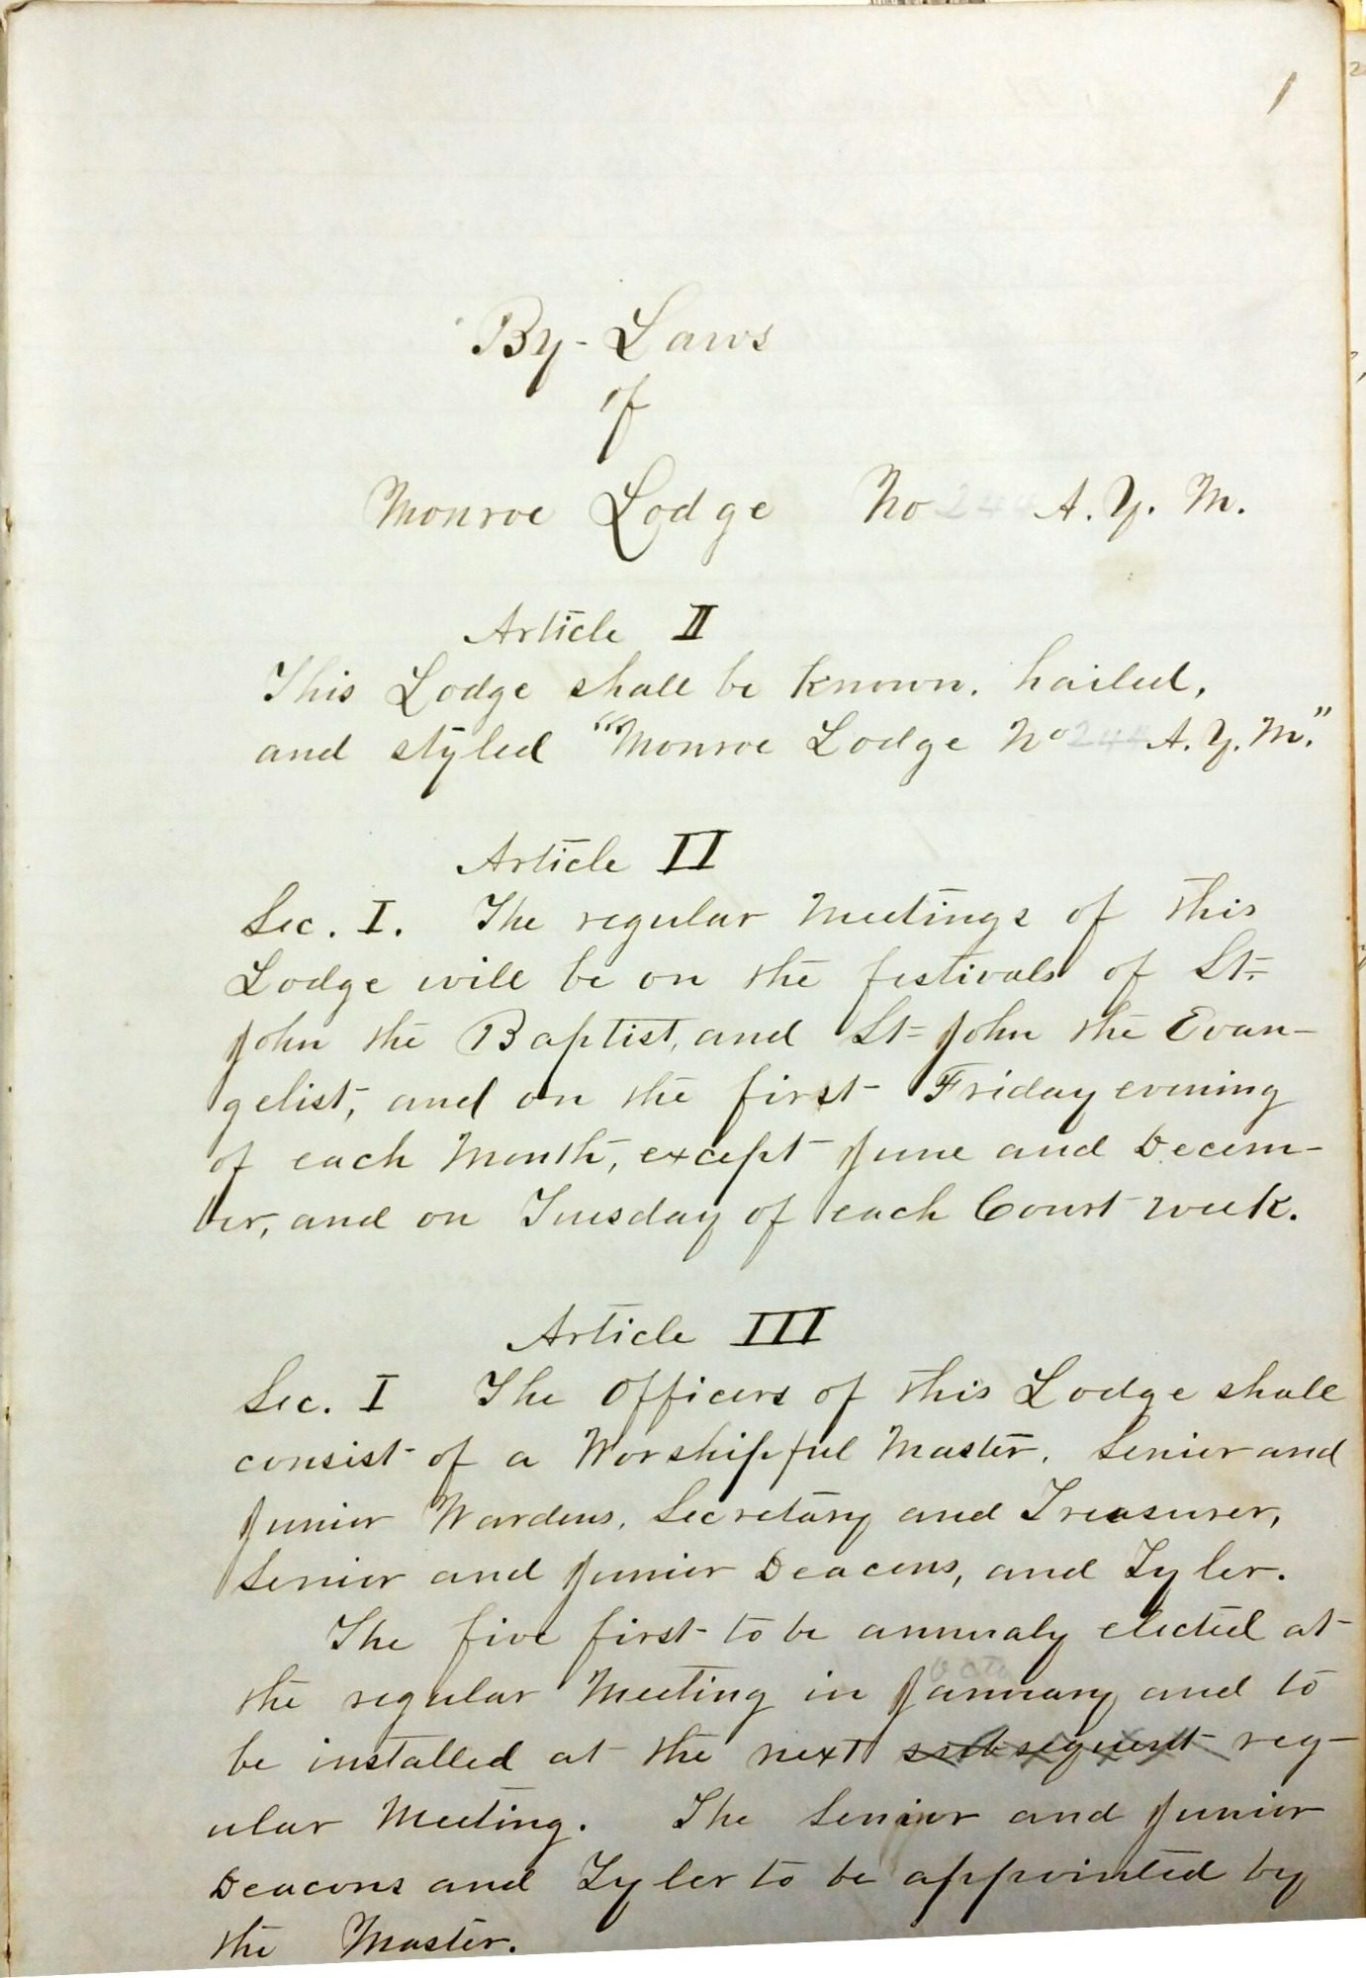 1
By-Laws
of
Monroe Lodge No 244 A. Y. M.
Article II
This Lodge shall be known, hailed,
and styled "Monroe Lodge No 244 A. Y. M."
Article II
Sec. I. The regular Meetings of this
Lodge will be on the festivals of St.
John the Baptist, and St= John the Evan-
gelist, and on the first Friday evening
of each Month, except June and Decem-
ber, and on Tuesday of each Court week.
Article III
Sec. I The Officers of this Lodge shall
consist of a Worshipful Master, Senior and
Junior Wardens, Secretary and Treasurer,
Senior and Junior Deacons, and Tyler.
The five first to be annualy elected at
the regular Meeting in January and to
be installed at the next subsequent reg-
ular Meeting. The Senior and Junior
Deacons and Tyler to be appointed by
the Master.